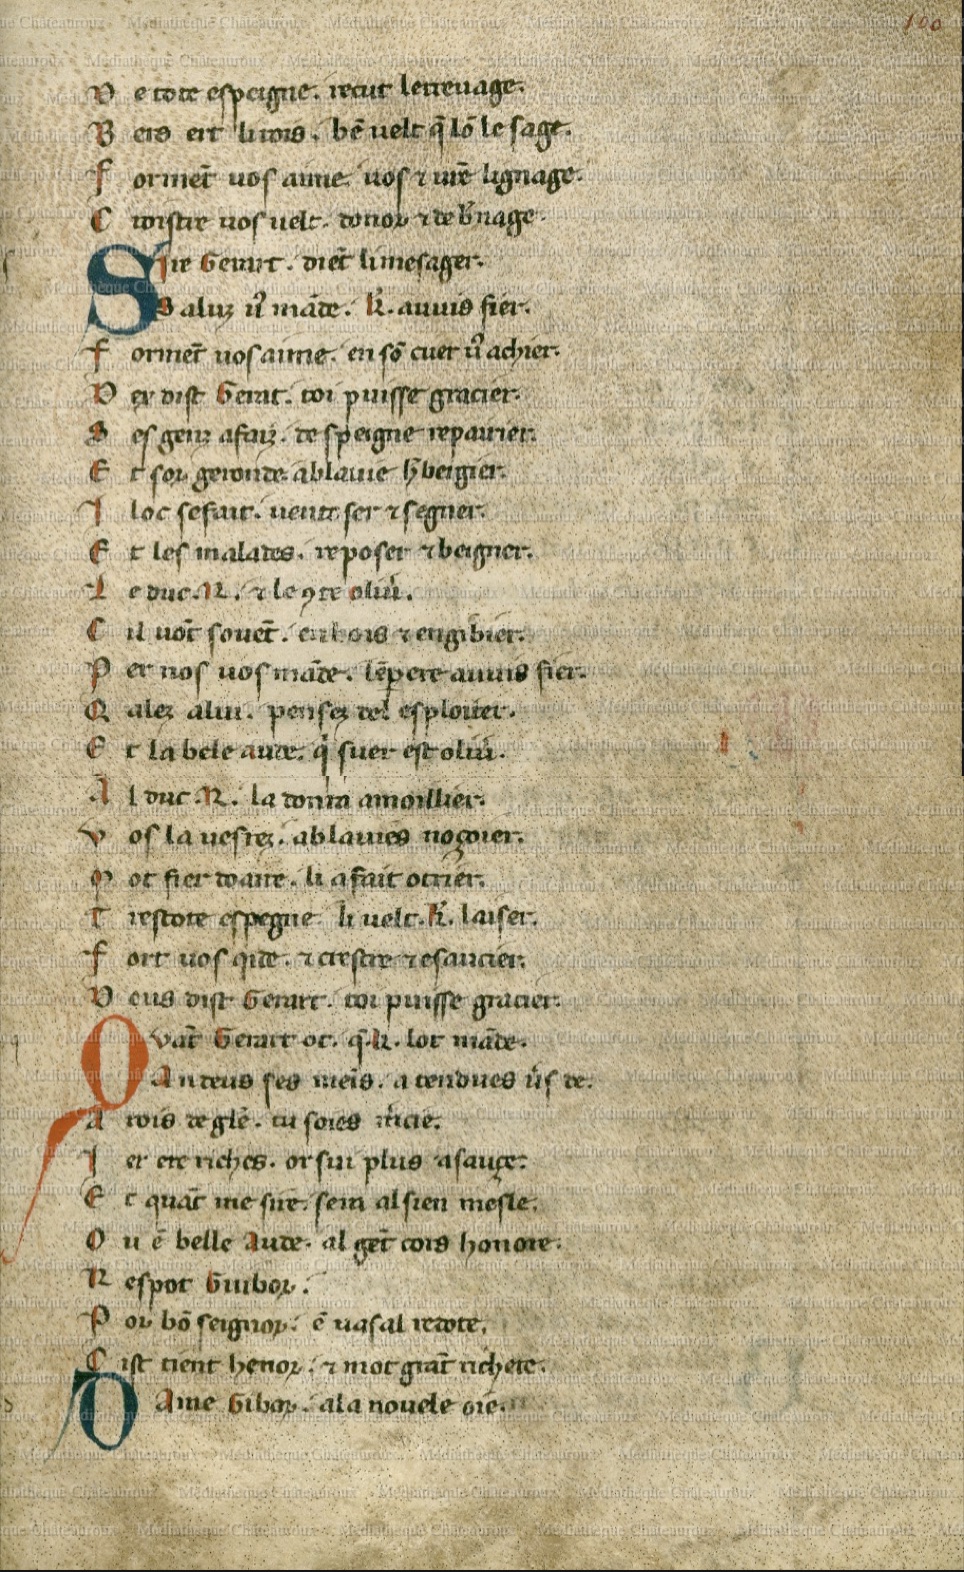 100
D e tote espeigne. recut letreuage.
B ers ert li rois. bē uelt q̄ lō le sage.
F ormēt uos aime. uos ⁊ ur̄e lignage.
C roistre uos uelt. donor ⁊ de b'nage.
S Ire Gerart. diēt li mesager.
S aluz u' māde. k'. au uis fier.
F ormēt uos aime. en sō cuer u' achier.
D ex dist Gerart. toi puisse gracier.
S es genz a faiz. de speigne repairier.
E t sor geronde. a blauie h'bergier.
I loc se fait. uentuser ⁊ segner.
E t les malades. reposer ⁊ beigner.
L e duc. R. ⁊ le 9te oliu'.
C il uōt souēt. en bois ⁊ en gibier.
P er nos uos māde. lēpere au uis fier.
Q alez a lui. pensez del esploitier.
E t la bele aude. q' suer est oliu'.
A l duc. R. la donra a moillier.
V os la uestrez. a blauies noçoier.
M ot fier doaire. li a fait otrier.
T restote espegne li uelt. k'. laiser.
F ort uos qide. ⁊ crestre ⁊ esaucier.
D eus dist Gerart. toi puisse gracier.
Q Vāt Gerart ot. q̄. k. lot māde.
A n deus ses meīs. a tendues u's de.
A rois de glē. tu soies m'cie.
I er ere riches. or sui plus asauze.
E t quāt me sire. sera al sien mesle.
O u ē belle Aude. al gēt cors honore.
R espot Guibor.
P or bō seignor. ē uasal redote.
C ist tient henor. ⁊ mot grāt richete.
D Ame Gibor. a la nouele oie.